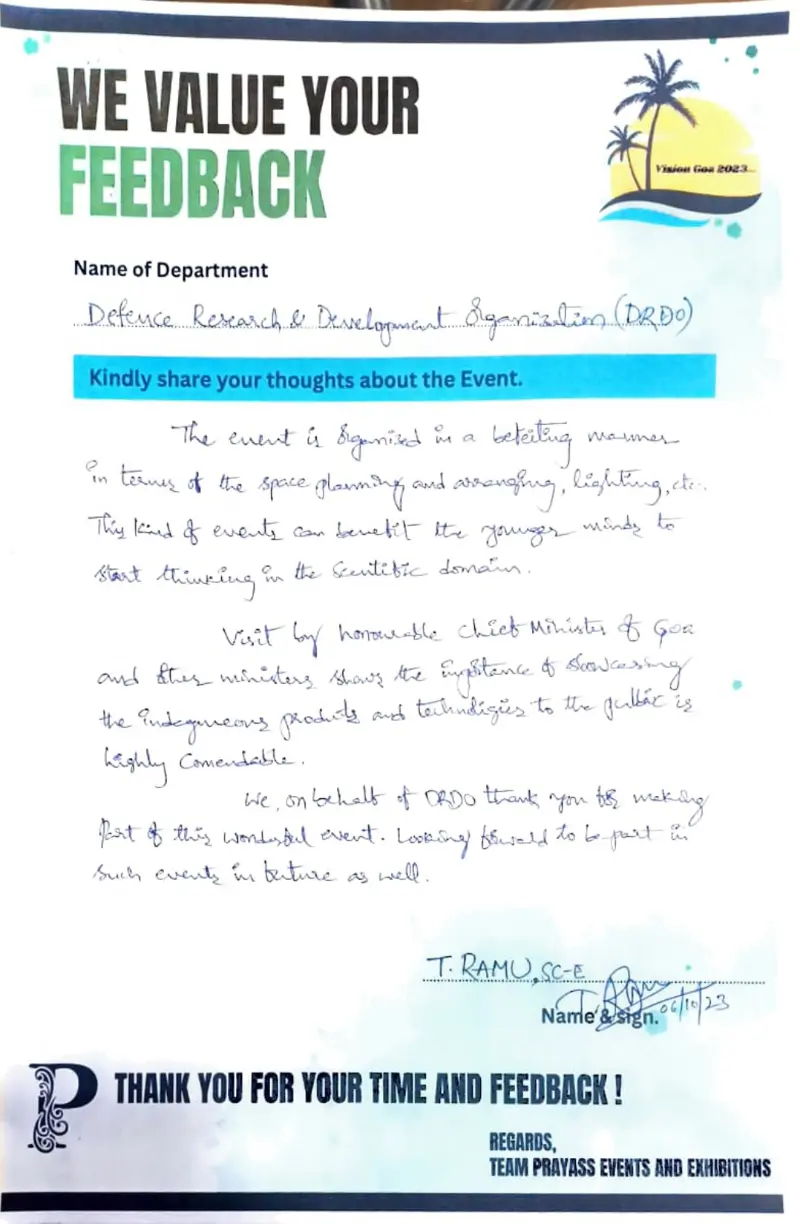 WE VALUE YOUR
FEEDBACK
Vision Goa 2023...
Name of Department
Defence Research & Development Organization (DRDO)
Kindly share your thoughts about the Event.
The event is Organised in a befeiting manner
in terms of the space planning and arranging, lighting, etc.
This kind of events can benefit the younger minds to
start thinking in the Scentific domain.
Visit by honourable Chief Minister of Goa
and other ministers shows the importance of showcasing
the indegeneous products and technologies to the public is
highly Comendable.
We, on behalf of DRDO thank you for making
Part of this wonderful event. Looking forward to be part in
such events in future as well.
T. RAMU, SC-E
Name & sign. 06/10/23
P THANK YOU FOR YOUR TIME AND FEEDBACK !
REGARDS,
TEAM PRAYASS EVENTS AND EXHIBITIONS